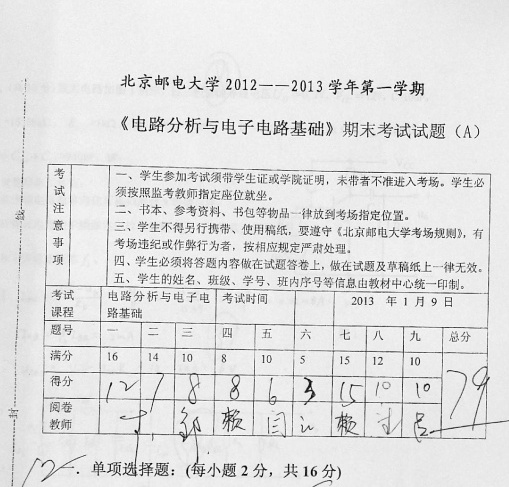 北京邮电大学2012——2013学年第一学期
《电路分析与电子电路基础》期末考试试题（A）
考试注意事项
一、学生参加考试须带学生证或学院证明，未带者不准进入考场。学生必
须按照监考教师指定座位就坐。
二、书本、参考资料、书包等物品一律放到考场指定位置。
三、学生不得另行携带、使用稿纸，要遵守《北京邮电大学考场规则》，有
考场违纪或作弊行为者，按相应规定严肃处理。
四、学生必须将答题内容做在试题答卷上，做在试题及草稿纸上一律无效。
五、学生的姓名、班级、学号、班内序号等信息由教材中心统一印制。
考试课程 电路分析与电子电路基础 考试时间 2013 年 1 月 9 日
题号 一 二 三 四 五 六 七 八 九 总分
满分 16 14 10 8 10 5 15 12 10
得分 12 7 8 8 6 3 15 10 10 79
阅卷教师 邹 赖 闫 赖 吕
12
. 单项选择题：(每小题 2 分，共 16 分)
封